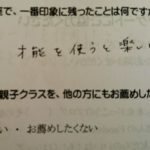 座で、一番印象に残ったことは何ですか
才能を使うと楽しい
親子クラスを、他の方にもお薦めした
い ・ お薦めしたくない